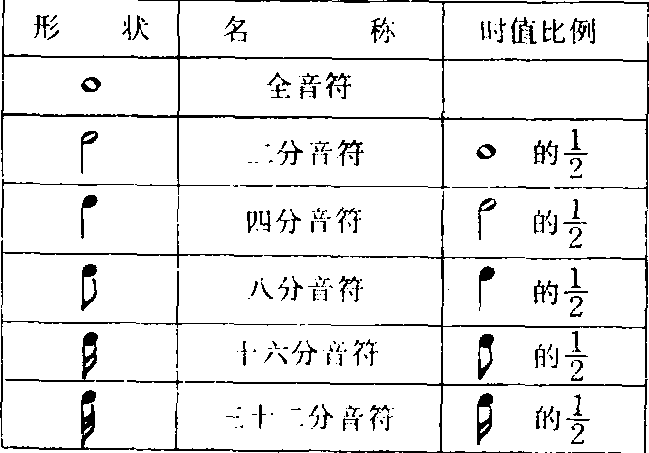 形 状 名 称 时值比例
全音符
二分音符 的1/2
四分音符 的1/2
八分音符 的1/2
十六分音符 的1/2
三十二分音符 的1/2